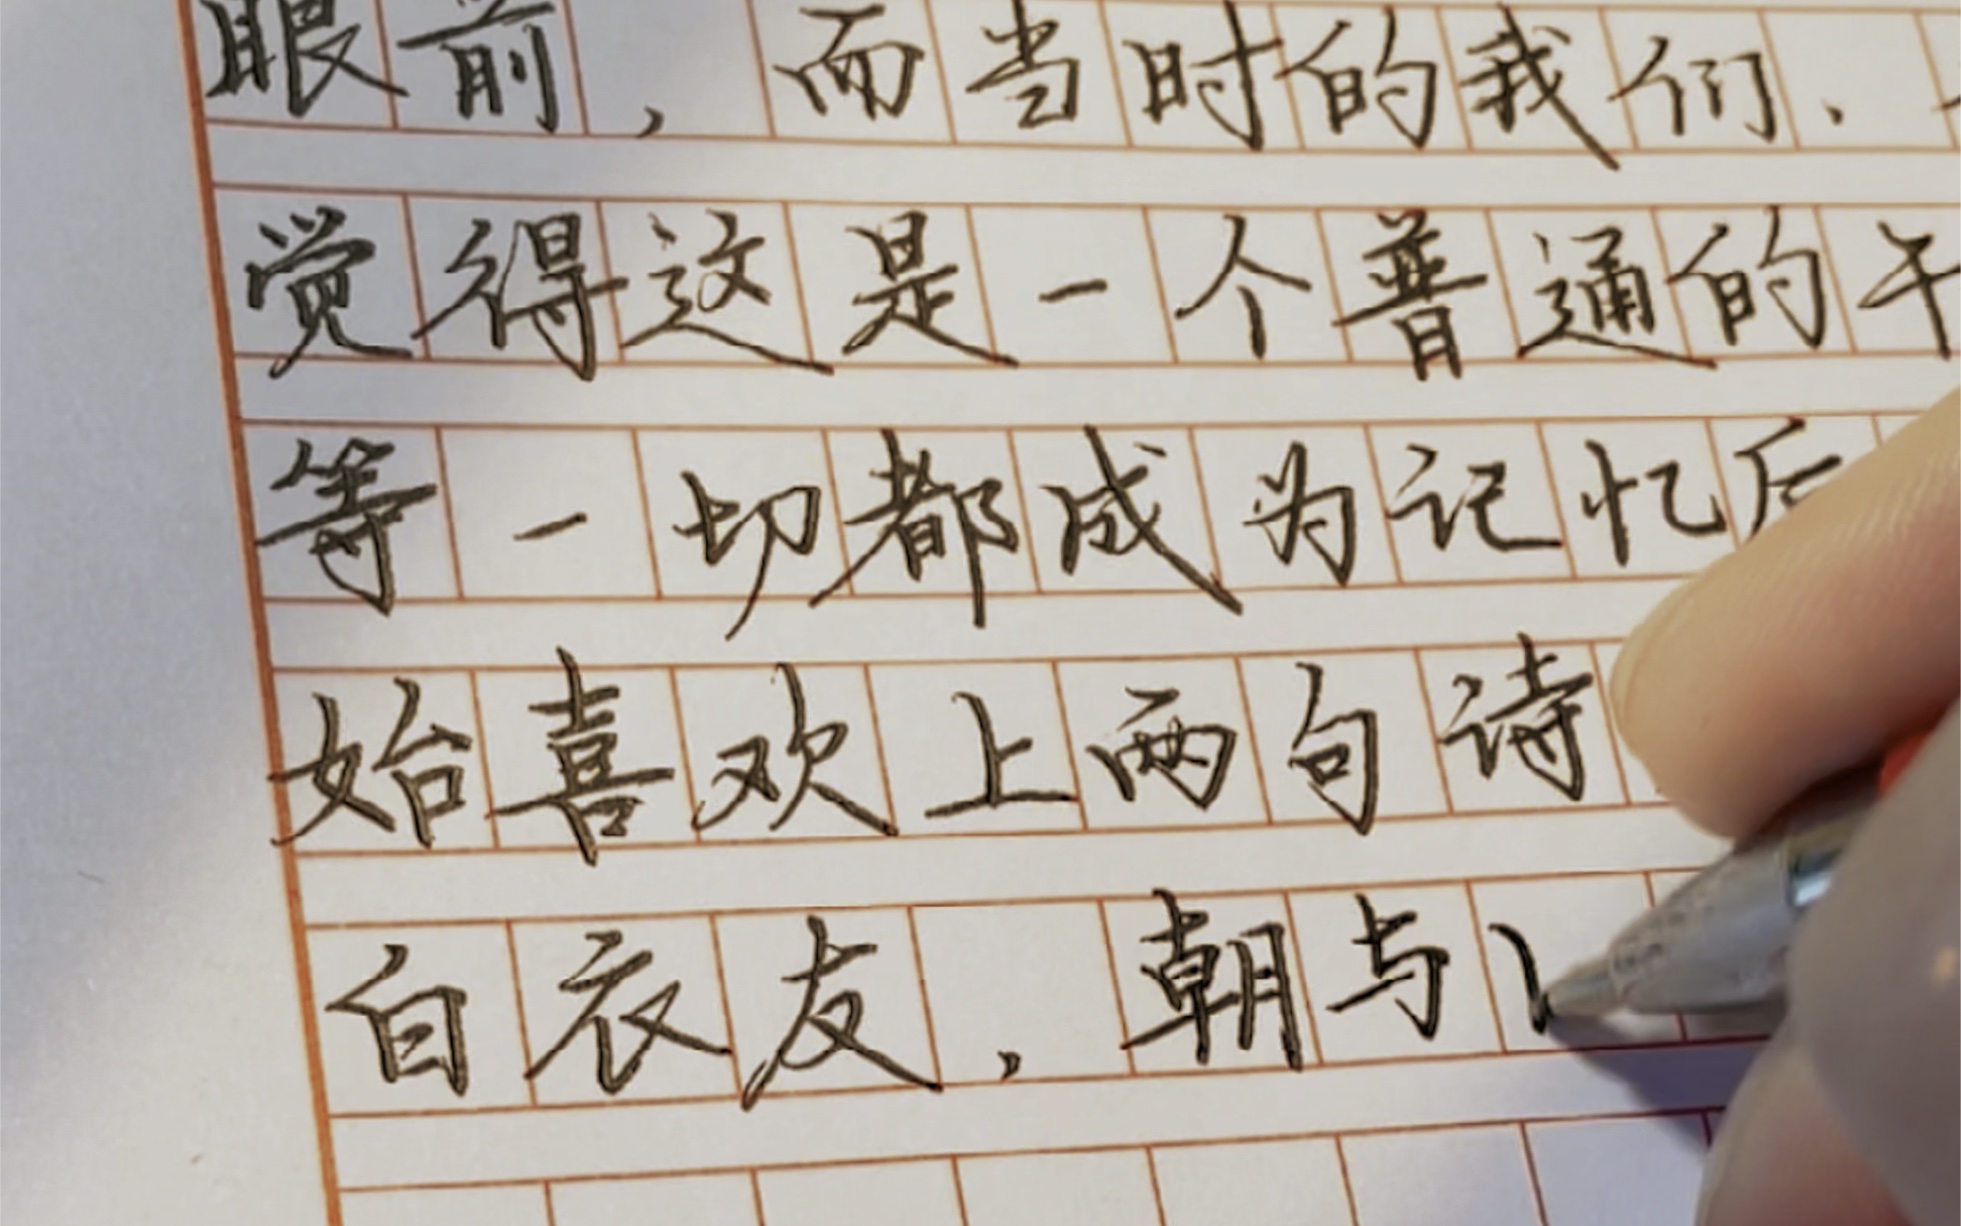 眼前，而当时的我们、
觉得这是一个普通的午
等一切都成为记忆后
始喜欢上两句诗
白衣友，朝与